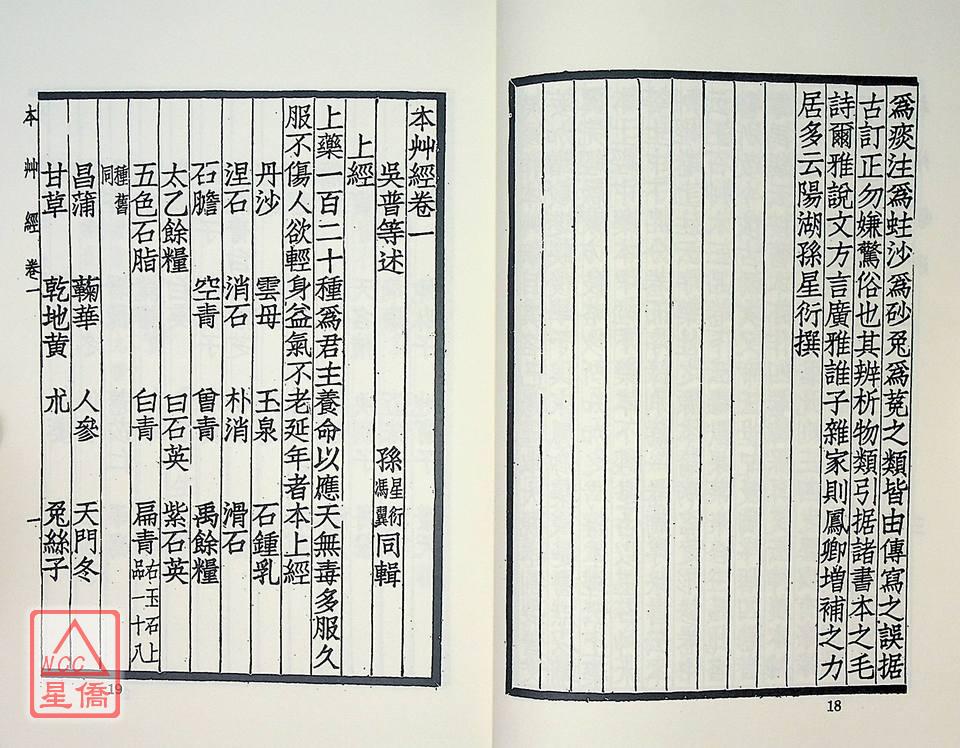 爲痰注爲蛀沙爲砂兎爲莵之類皆由傳寫之誤据
古訂正勿嫌驚俗也其辨析物類引据諸書本之毛
詩爾雅說文方言廣雅誰子雜家則鳳卿增補之力
居多云陽湖孫星衍撰
18
本艸經卷一
吳普等述 孫星衍馮翼同輯
上經
上藥一百二十種爲君主養命以應天無毒多服久
服不傷人欲輕身益氣不老延年者本上經
丹沙 雲母 玉泉 石鍾乳
涅石 消石 朴消 滑石
石膽 空青 曾青 禹餘糧
太乙餘糧 白石英 紫石英
五色石脂 白青 扁青右玉石上品一十八
種舊同
昌蒲 蘜華 人參 天門冬
甘草 乾地黄 朮 兎絲子
本艸經卷一 一
19
NCC
星僑